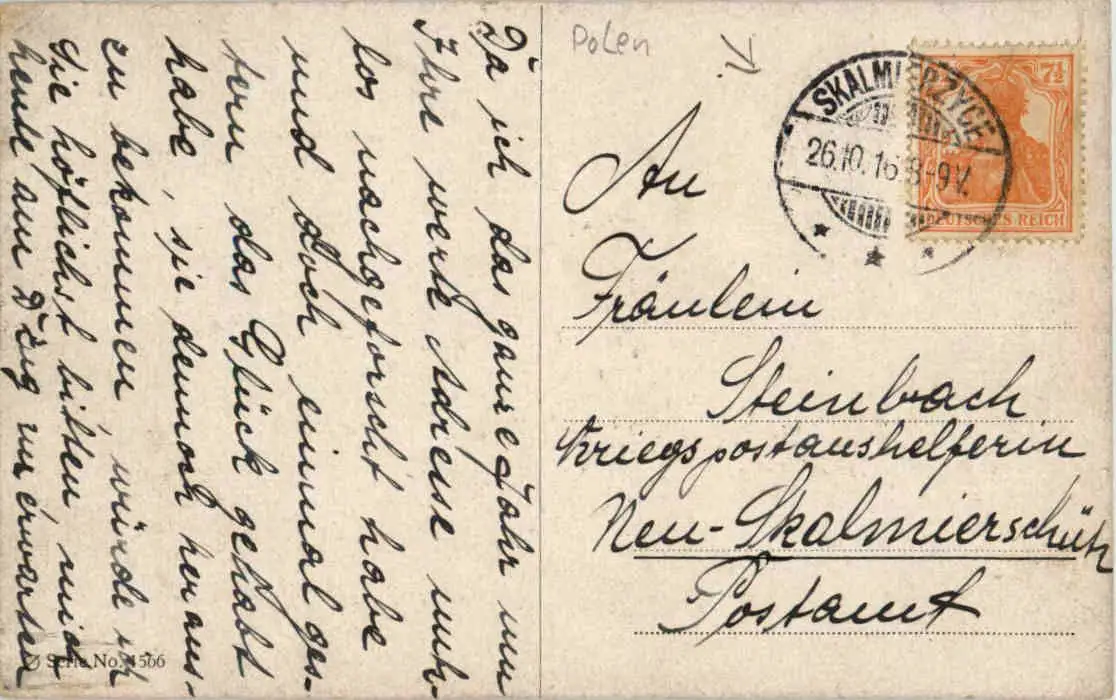 Da ich das ganze Jahr um
Ihre werte Adresse nutz-
los nachgeforscht habe
und doch einmal ges-
tern das Glück gehabt
habe, sie dennoch heraus-
zu bekommen würde ich
Sie höflichst bitten mich
heute am Zug zu erwarten
Serie No. 4566
Polen
SKALMIERZYCE
26.10.16 8-9V.
7½
DEUTSCHES REICH
An
Fräulein
Steinbach
Kriegspostaushelferin
Neu-Skalmierschütz
Postamt